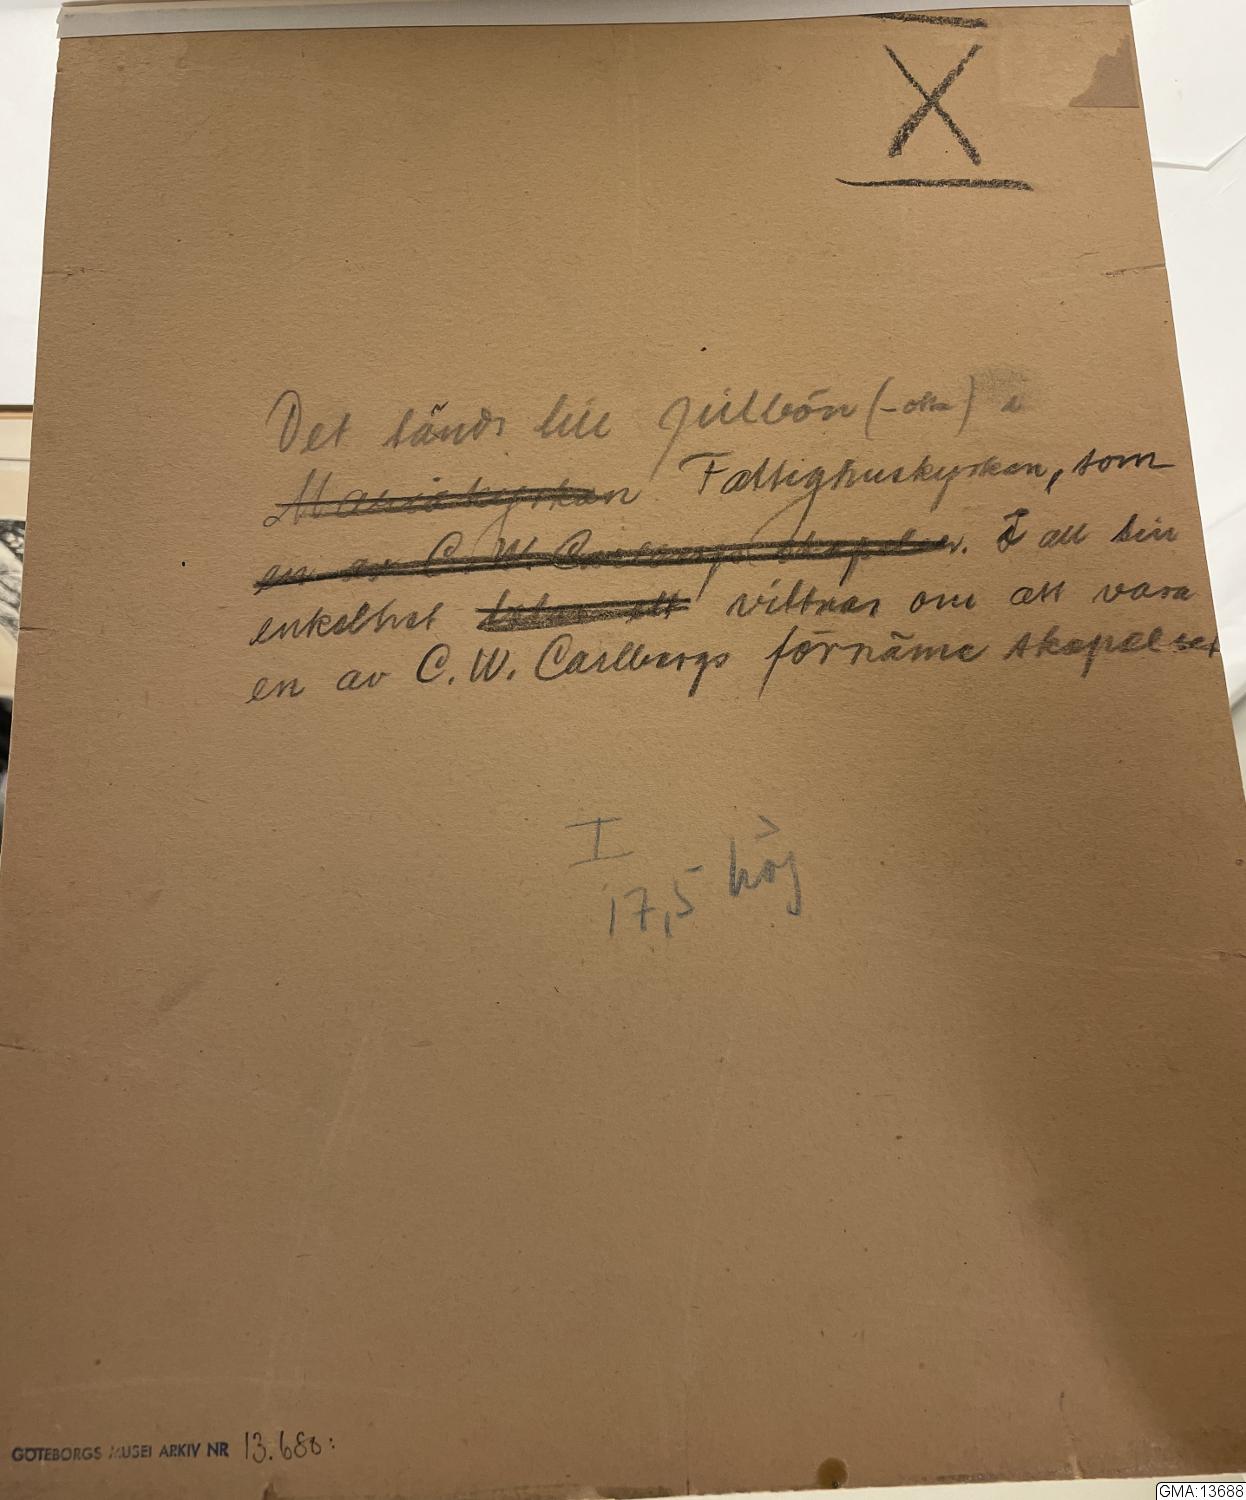 X
Det tänds till julbön (-otta) i
Mariakyrkan Fattighuskyrkan, som
en av C. W. Carlbergs skapelser. I all sin
enkelhet vittnar om att vara
en av C. W. Carlbergs förnäma skapelser
I
17,5 hög
GÖTEBORGS MUSEI ARKIV NR 13.688:
GMA:13688